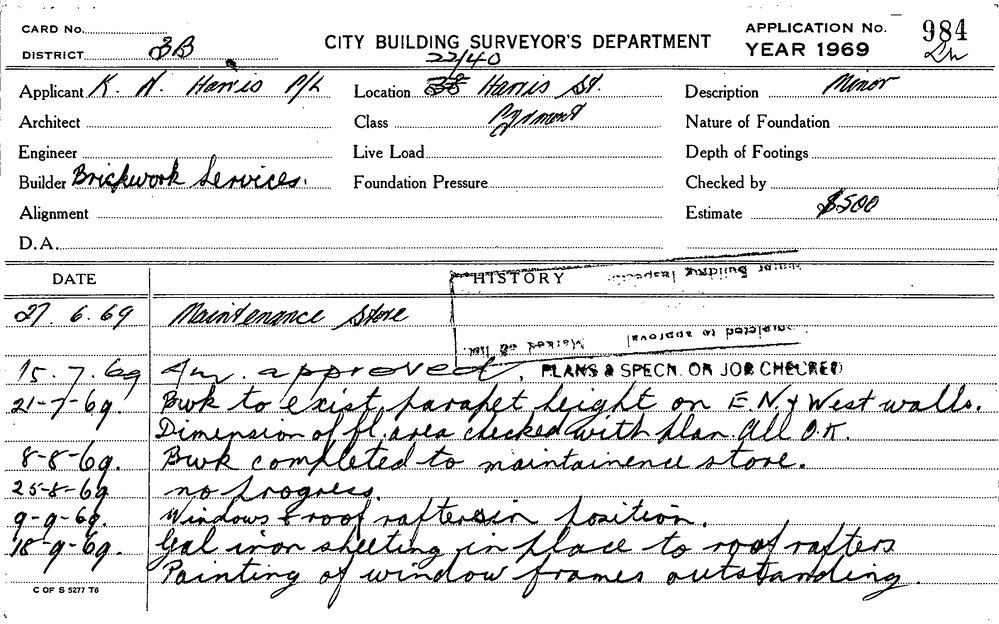 CARD No.
DISTRICT 3B
CITY BUILDING SURVEYOR'S DEPARTMENT
APPLICATION No. 984
YEAR 1969
22/40
Applicant K. N. Harris P/L
Location 38 Harris St.
Description Minor
Architect
Class Pyrmont
Nature of Foundation
Engineer
Live Load
Depth of Footings
Builder Brickwork Services.
Foundation Pressure
Checked by
Alignment
Estimate $500
D.A.
DATE
HISTORY
Building Inspector
subjected to approval
Marked on list.
27.6.69 Maintenance Store
15.7.69 approved, PLANS & SPECN. OR JOB CHECKED
21-7-69. Bwk to exist parapet height on E.N. & West walls.
Dimension of fl. area checked with plan All O.K.
8-8-69. Bwk completed to maintainence store.
25-8-69 no progress.
9-9-69. Windows & roof rafters in position.
18-9-69. Gal iron sheeting in place to roof rafters
Painting of window frames outstanding.
C OF S 5277 T6